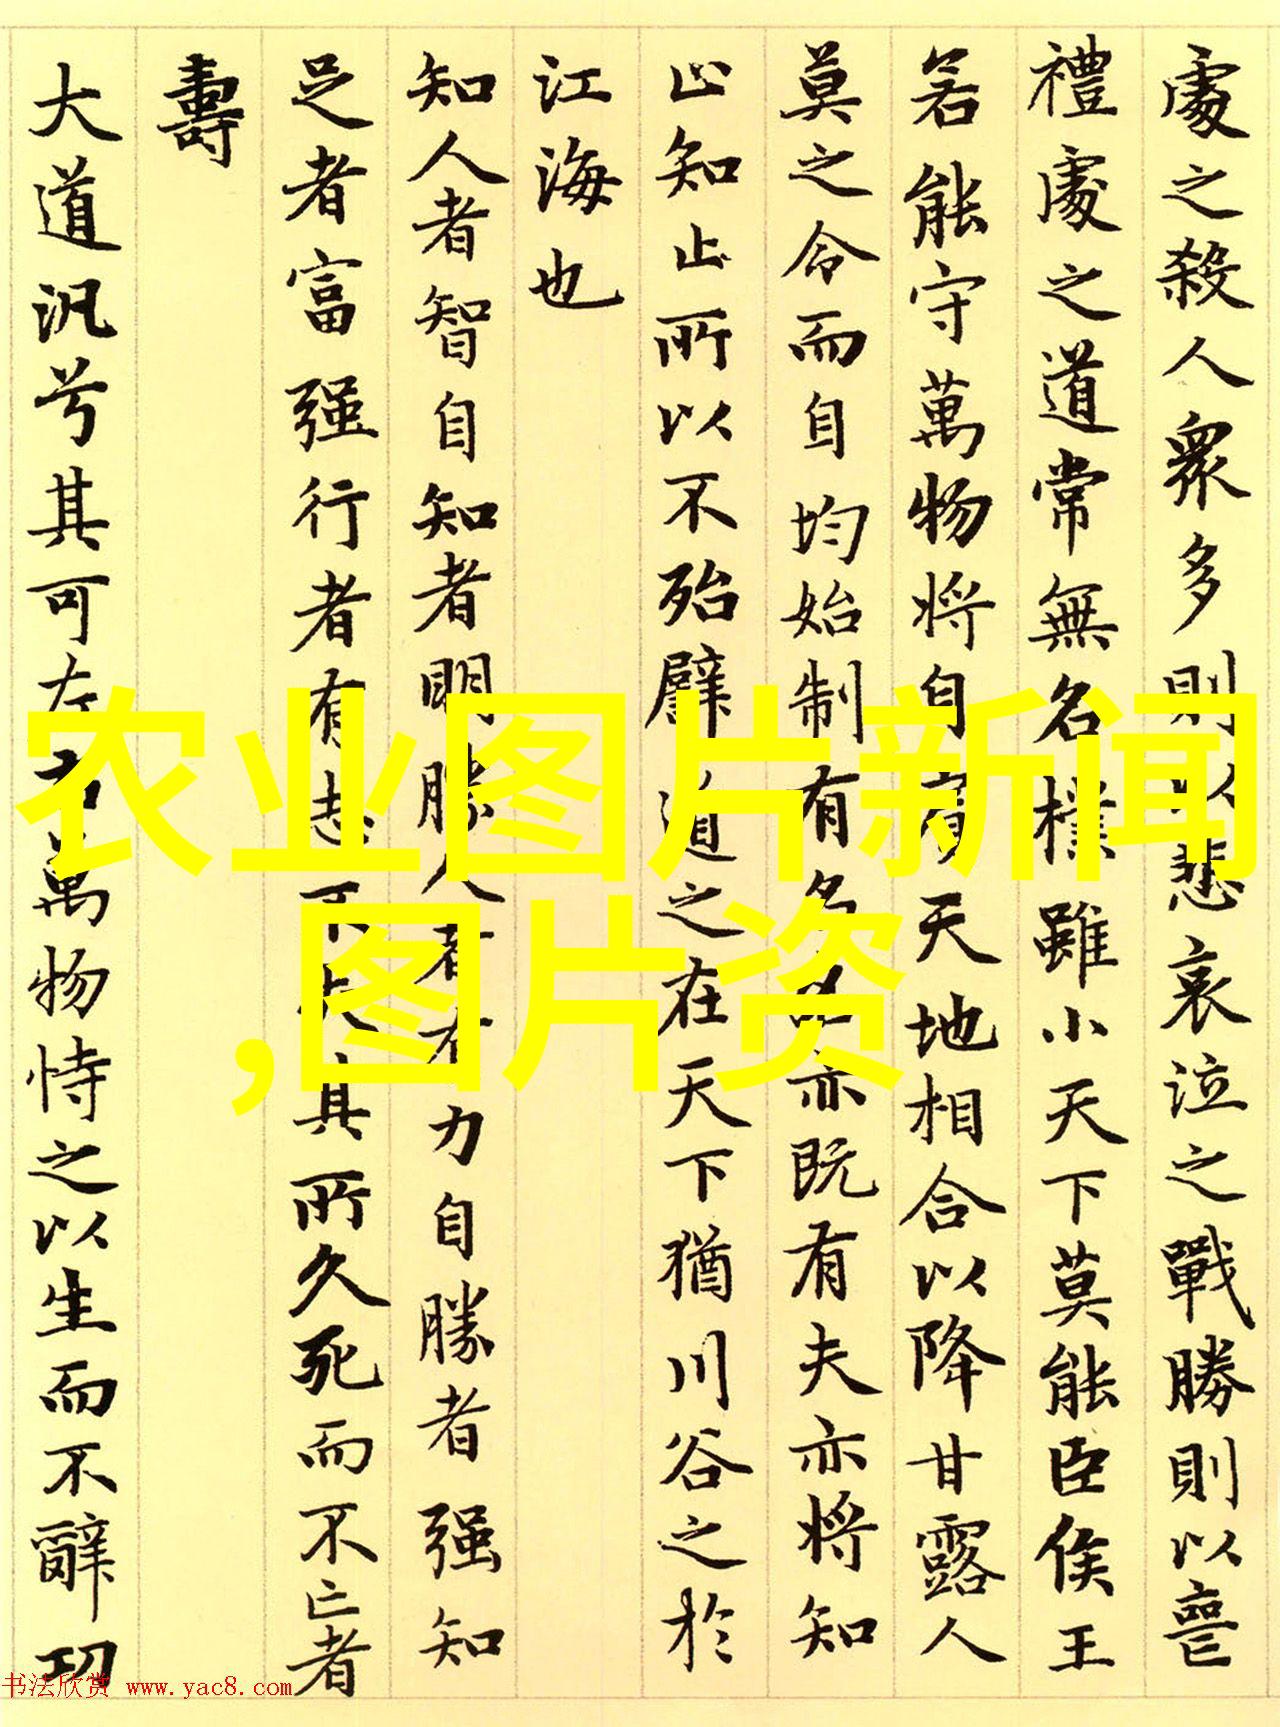 處之殺人衆多則以悲哀泣之戰勝則以喪
禮處之道常無名樸雖小天下莫能臣侯王
若能守萬物將自賓天地相合以降甘露人
莫之令而自均始制有名名亦既有夫亦將知
止知止所以不殆譬道之在天下猶川谷之於
江海也
知人者智自知者明勝人者有力自勝者强知
足者富强行者有志不失其所久死而不亡者
壽
大道汎兮其可左右萬物恃之以生而不辭功
农业图片新闻
,图片资
书法欣赏 www.yac8.com